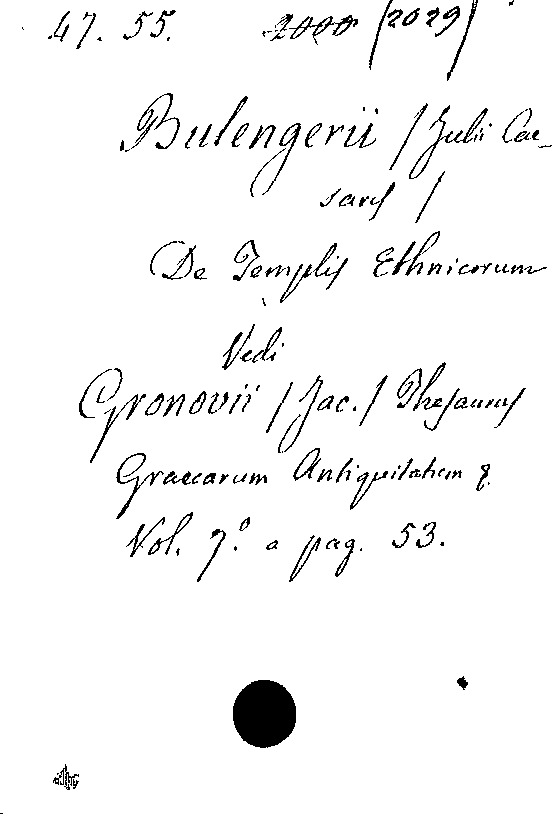 47. 55. 2000 (2029)
Bulengerii / Julii Cae-
saris /
De Templis Ethnicorum
Vedi
Gronovii / Jac. / Thesaurus
Graecarum Antiquitatum &.
Vol. 7.º a pag. 53.